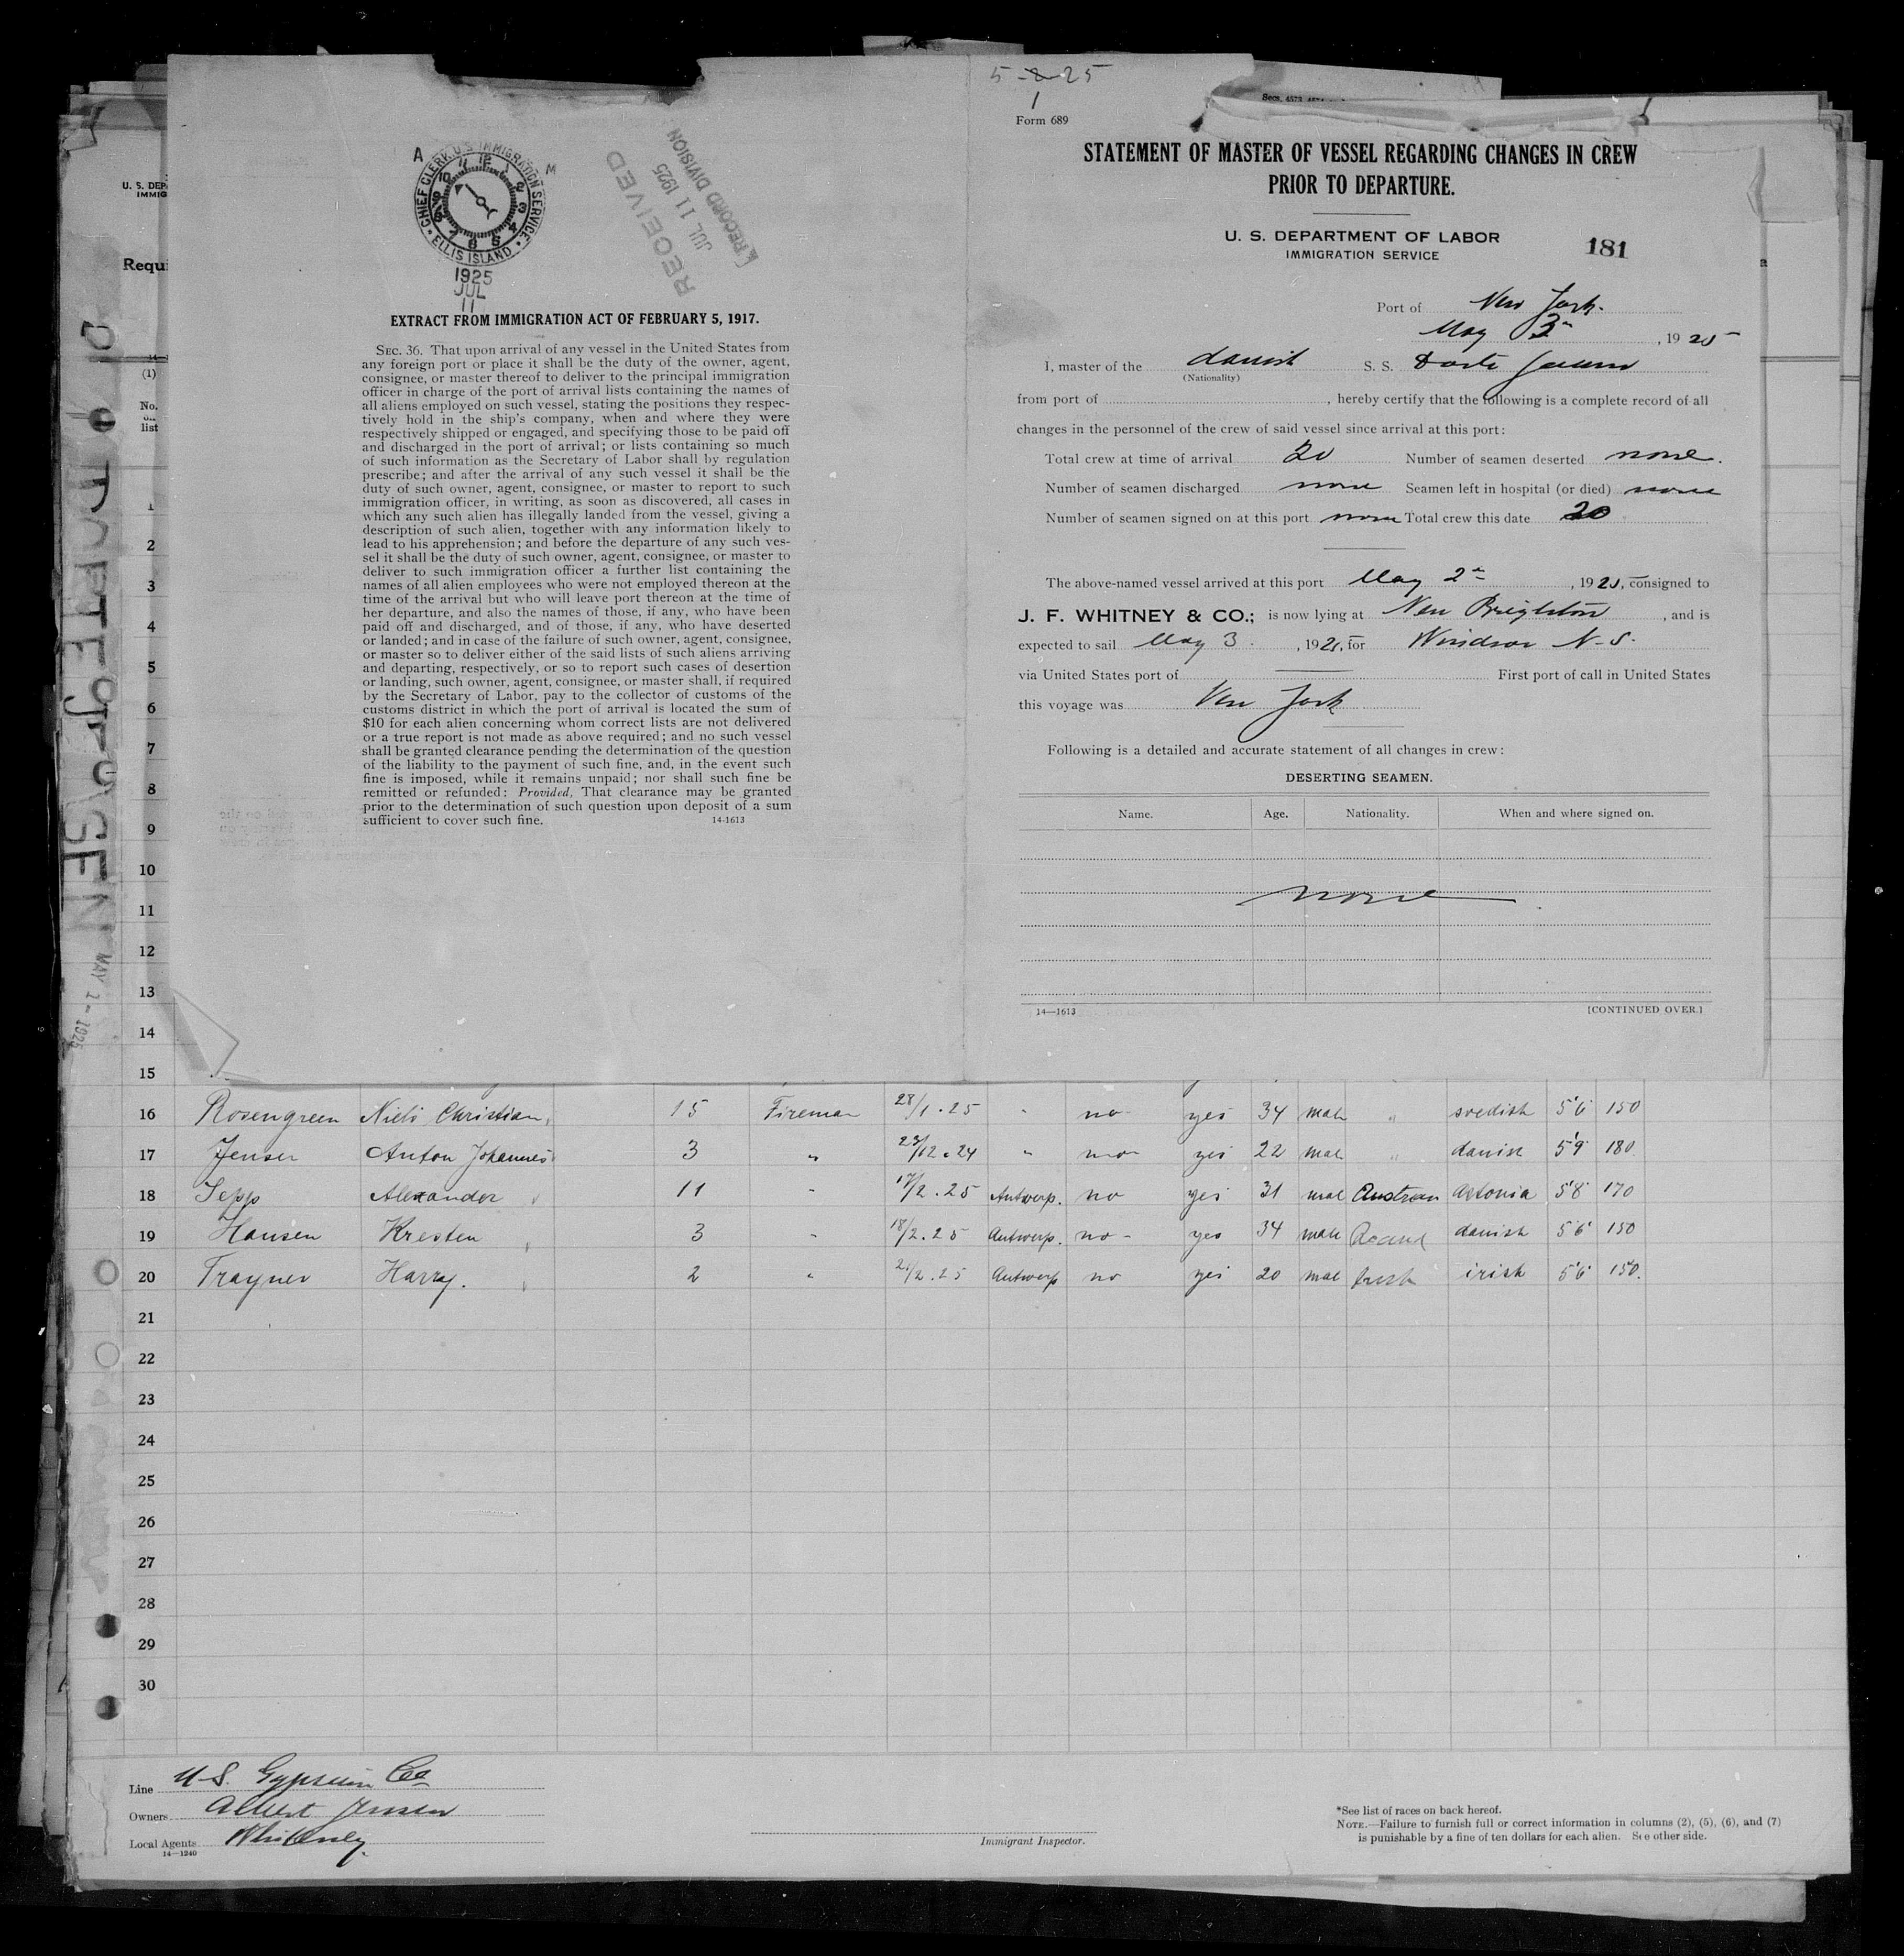 5-2-25
1
Form 689
Secs. 4573
STATEMENT OF MASTER OF VESSEL REGARDING CHANGES IN CREW
PRIOR TO DEPARTURE.
U. S. DEPARTMENT OF LABOR
IMMIGRATION SERVICE
181
Port of New York.
May 3rd, 1925
I, master of the danish S. S.
(Nationality)
from port of , hereby certify that the following is a complete record of all
changes in the personnel of the crew of said vessel since arrival at this port:
Total crew at time of arrival 20 Number of seamen deserted none.
Number of seamen discharged none Seamen left in hospital (or died) none
Number of seamen signed on at this port none Total crew this date 20
The above-named vessel arrived at this port May 2nd, 1925, consigned to
J. F. WHITNEY & CO.; is now lying at New Brighton, and is
expected to sail May 3., 1925, for Windsor N-S.
via United States port of First port of call in United States
this voyage was New York
Following is a detailed and accurate statement of all changes in crew:
DESERTING SEAMEN.
Name. Age. Nationality. When and where signed on.
none
14—1613 [CONTINUED OVER.]
A M
CHIEF CLERK U.S. IMMIGRATION SERVICE
ELLIS ISLAND
1925
JUL
11
RECEIVED
JUL 11 1925
RECORD DIVISION
EXTRACT FROM IMMIGRATION ACT OF FEBRUARY 5, 1917.
SEC. 36. That upon arrival of any vessel in the United States from
any foreign port or place it shall be the duty of the owner, agent,
consignee, or master thereof to deliver to the principal immigration
officer in charge of the port of arrival lists containing the names of
all aliens employed on such vessel, stating the positions they respec-
tively hold in the ship's company, when and where they were
respectively shipped or engaged, and specifying those to be paid off
and discharged in the port of arrival; or lists containing so much
of such information as the Secretary of Labor shall by regulation
prescribe; and after the arrival of any such vessel it shall be the
duty of such owner, agent, consignee, or master to report to such
immigration officer, in writing, as soon as discovered, all cases in
which any such alien has illegally landed from the vessel, giving a
description of such alien, together with any information likely to
lead to his apprehension; and before the departure of any such ves-
sel it shall be the duty of such owner, agent, consignee, or master to
deliver to such immigration officer a further list containing the
names of all alien employees who were not employed thereon at the
time of the arrival but who will leave port thereon at the time of
her departure, and also the names of those, if any, who have been
paid off and discharged, and of those, if any, who have deserted
or landed; and in case of the failure of such owner, agent, consignee,
or master so to deliver either of the said lists of such aliens arriving
and departing, respectively, or so to report such cases of desertion
or landing, such owner, agent, consignee, or master shall, if required
by the Secretary of Labor, pay to the collector of customs of the
customs district in which the port of arrival is located the sum of
$10 for each alien concerning whom correct lists are not delivered
or a true report is not made as above required; and no such vessel
shall be granted clearance pending the determination of the question
of the liability to the payment of such fine, and, in the event such
fine is imposed, while it remains unpaid; nor shall such fine be
remitted or refunded: Provided, That clearance may be granted
prior to the determination of such question upon deposit of a sum
sufficient to cover such fine. 14-1613
U. S. DEP
IMMIG
Requi
(1)
No.
on
list
MAY 2-1925
1
2
3
4
5
6
7
8
9
10
11
12
13
14
15
16 Rosengreen Niels Christian 15 Fireman 28/1.25 " no yes 34 male " swedish 5'6 150
17 Jensen Anton Johannes 3 " 23/12.24 " no yes 22 male " danish 5'9 180
18 Sepp Alexander 11 " 17/2.25 Antwerp. no yes 31 male Estonia 5'8 170
19 Hansen Kresten 3 " 18/2.25 Antwerp. no yes 34 male danish 5'6 150
20 Trayner Harry. 2 " 21/2.25 Antwerp no yes 20 male Irish irish 5'6 150.
21
22
23
24
25
26
27
28
29
30
Line U-S. Gypsum Co
Owners Albert Jensen
Local Agents Whitney.
14—1240
Immigrant Inspector.
*See list of races on back hereof.
NOTE.—Failure to furnish full or correct information in columns (2), (5), (6), and (7)
is punishable by a fine of ten dollars for each alien. See other side.